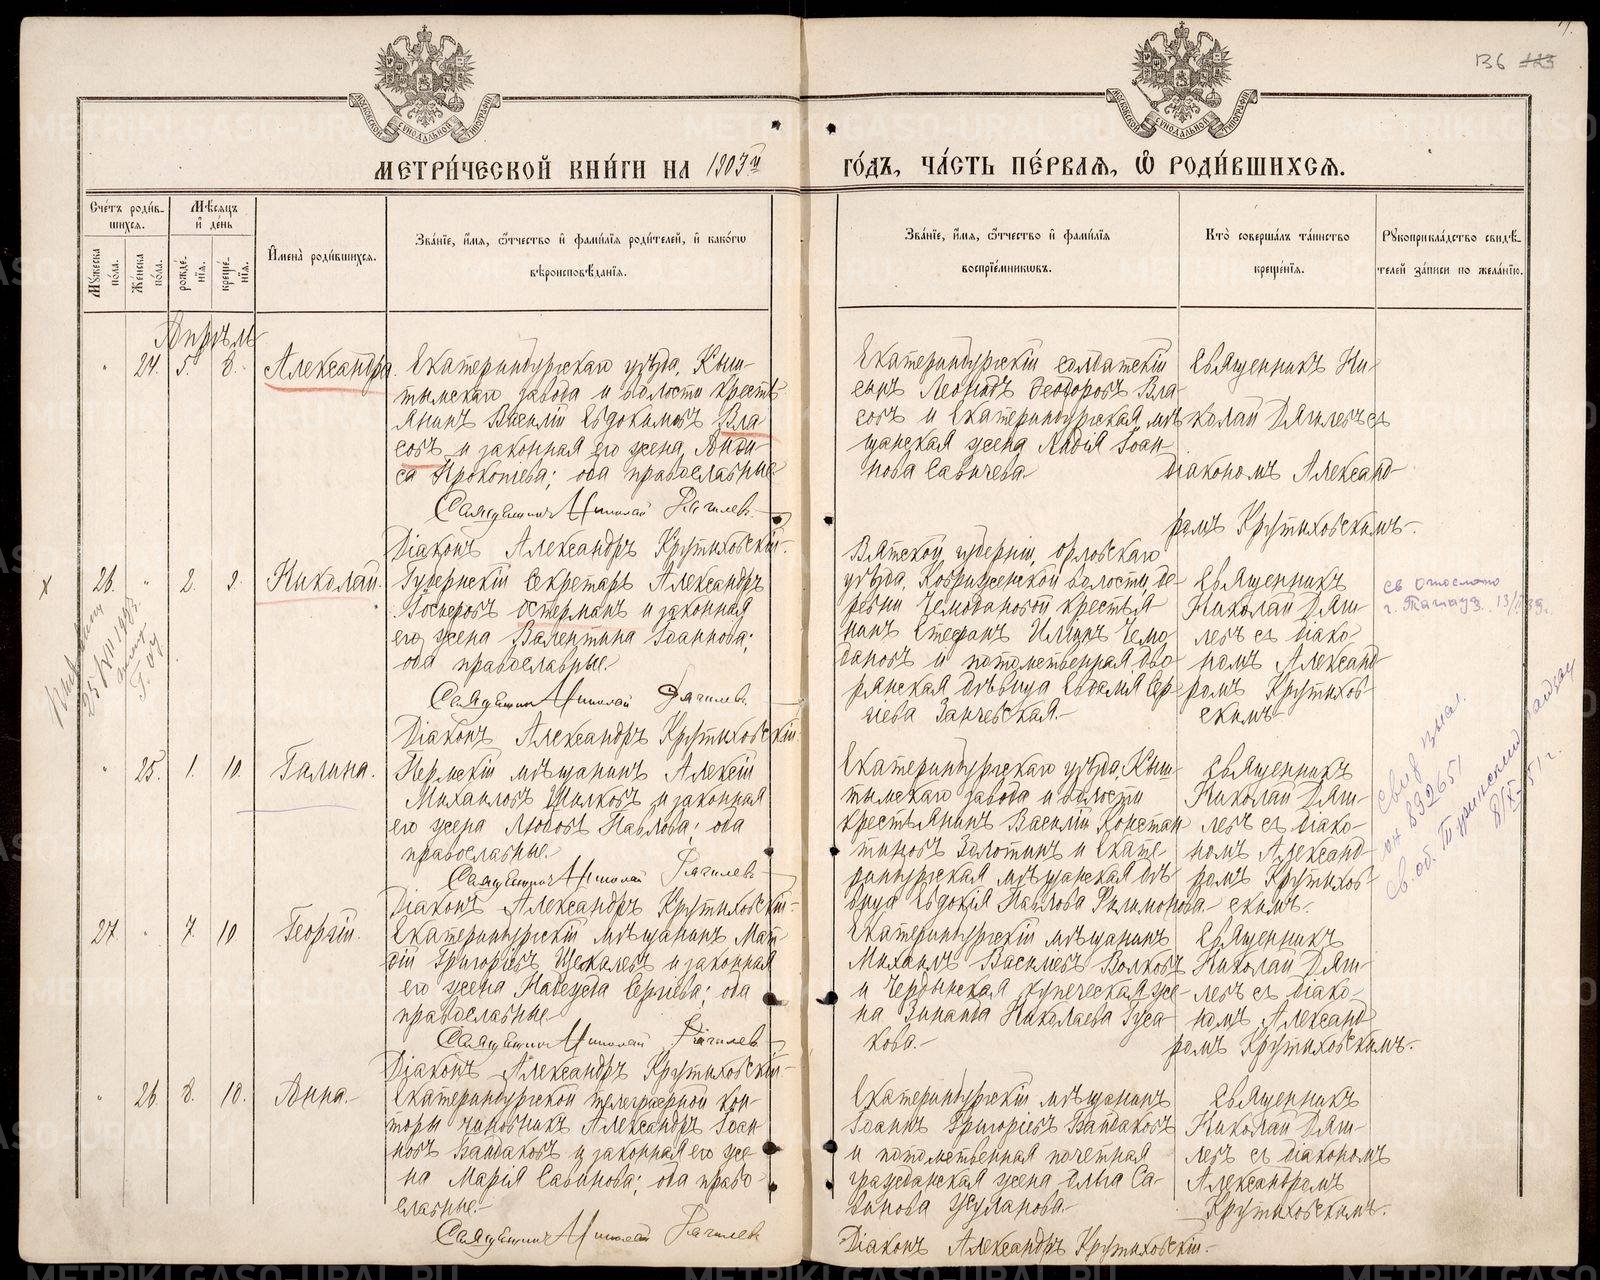 136 123
МОСКОВСКОЙ СѴНОДАЛЬНОЙ ТИПОГРАФІИ
МОСКОВСКОЙ СѴНОДАЛЬНОЙ ТИПОГРАФІИ
МЕТРИ́ЧЕСКОЙ КНИ́ГИ НА 1903й
ГО́ДЪ, ЧА́СТЬ ПЕ́РВАѦ, Ѡ҆ РОДИ́ВШИХСѦ.
Сче́тъ роди́в-
шихсѧ.
Мѣ́сѧцъ
и҆ де́нь
Мꙋ́жеска
по́ла.
Же́нска
по́ла.
рожде́-
нїѧ.
креще́-
нїѧ.
И҆мена̀ роди́вшихсѧ.
Зва́нїе, и҆́мѧ, ѻ҆́тчество и҆ фами́лїѧ роди́телей, и҆ како́гѡ
вѣроисповѣ́данїѧ.
Зва́нїе, и҆́мѧ, ѻ҆́тчество и҆ фами́лїѧ
воспрїе́мникѡвъ.
Кто̀ соверша́лъ та́инство
креще́нїѧ.
Рꙋкоприкла́дство свидѣ́-
телей за́писи по жела́нїю.
Апрѣль
" 24. 5. 8. Александра.
Екатеринбургскаго уѣзда, Кыш-
тымскаго завода и волости кресть-
янинъ Василій Евдокимовъ Вла-
совъ и законная его жена Анфи-
са Прокопьева; оба православные
Священникъ Николай Дягилевъ
Діаконъ Александръ Крутиховскій.
Екатеринбургскій солдатскій
сынъ Леонидъ Ѳеодоровъ Вла-
совъ и Екатеринбургская мѣ-
щанская жена Лидія Іоан-
нова Савичева
Священникъ Ни-
колай Дягилевъ съ
діакономъ Александ-
ромъ Крутиховскимъ.
х 26. " 2. 9. Николай.
Губернскій Секретарь Александръ
Іосифовъ Остерманъ и законная
его жена Валентина Іоаннова;
оба православные.
Священникъ Николай Дягилевъ
Діаконъ Александръ Крутиховскій
Вятской губерніи, Орловскаго
уѣзда, Кобринской волости, де-
ревни Чемодановой крестья-
нинъ Стефанъ Илiинъ Чемо-
дановъ и потомственная дво-
рянская дѣвица Евдокія Сер-
гіева Занчевская.
Священникъ
Николай Дяги-
левъ съ діако-
номъ Александ-
ромъ Крутихов-
скимъ
св отослано
г. Тагауз. 13/II 39г.
25/XII 1987.
" 25. 1. 10. Галина.
Пермскій мѣщанинъ Алексій
Михаиловъ Шилковъ и законная
его жена Любовь Павлова; оба
православные.
Священникъ Николай Дягилевъ
Діаконъ Александръ Крутиховскій.
Екатеринбургскаго уѣзда, Кыш-
тымскаго завода и волости
крестьянинъ Василій Констан-
тиновъ Золотинъ и Екате-
ринбургская мѣщанская дѣ-
вица Евдокія Павлова Филимонова
Священникъ
Николай Дяги-
левъ съ діако-
номъ Александ-
ромъ Крутихов-
скимъ.
832651
8/X-51г.
27. " 7. 10. Георгій.
Екатеринбургскій мѣщанинъ Мат-
ѳій Григорьевъ Щекалевъ и законная
его жена Надежда Сергіева; оба
православные
Священникъ Николай Дягилевъ
Діаконъ Александръ Крутиховскій
Екатеринбургскій мѣщанинъ
Михаилъ Василіевъ Волковъ
и Чердынская купеческая же-
на Зинаида Николаева Гуса-
кова.
Священникъ
Николай Дяги-
левъ съ діако-
номъ Александ-
ромъ Крутиховскимъ.
" 26 8. 10. Анна.
Екатеринбургской телеграфной кон-
торы чиновникъ Александръ Іоан-
новъ Байдаковъ и законная его же-
на Марія Савинова; оба право-
славные.
Священникъ Николай Дягилевъ
Екатеринбургскій мѣщанинъ
Іоаннъ Григорьевъ Байдаковъ
и потомственная почетная
гражданская жена Ольга Са-
винова Жуланова
Священникъ
Николай Дяги-
левъ съ діакономъ
Александромъ
Крутиховскимъ.
Діаконъ Александръ Крутиховскій.